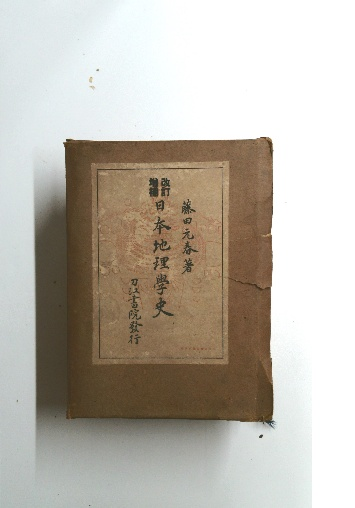 藤田元春著
改訂
增補
日本地理學史
刀江書院發行